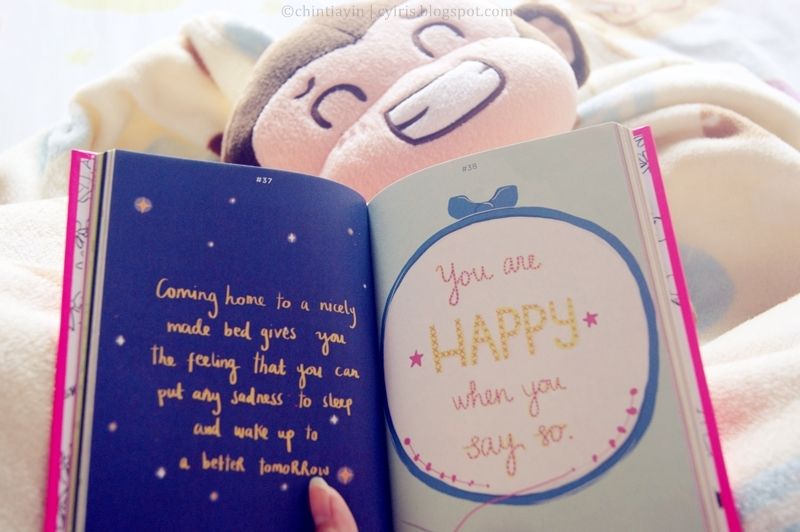 ©chintiavin | cylris.blogspot.com
#37
Coming home to a nicely
made bed gives you
the feeling that you can
put any sadness to sleep
and wake up to
a better tomorrow
#38
You are
HAPPY
when you
say so.